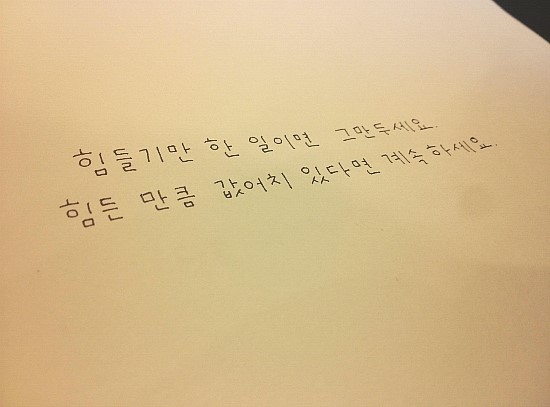 힘들기만 한 일이면 그만두세요.
힘든 만큼 값어치 있다면 계속하세요.